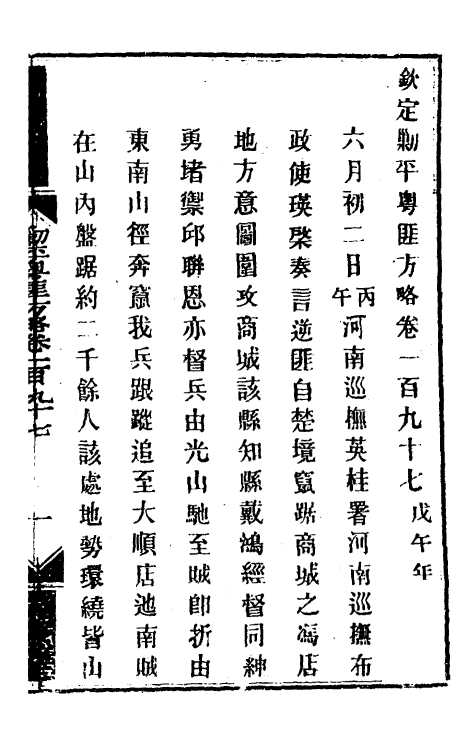 欽定勦平粵匪方略卷一百九十七戊午年
六月初二日丙午河南巡撫英桂署河南巡撫布
政使瑛棨奏言逆匪自楚境竄踞商城之馮店
地方意圖圍攻商城該縣知縣戴鴻經督同紳
勇堵禦邱聯恩亦督兵由光山馳至賊卽折由
東南山徑奔竄我兵跟蹤追至大順店迤南賊
在山內盤踞約二千餘人該處地勢環繞皆山
卷一百九十七
一